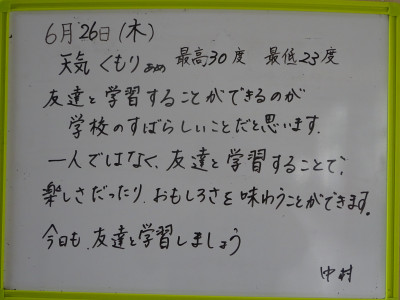 6月26日(木)
天気 くもり あめ 最高30度 最低23度
友達と学習することができるのが
学校のすばらしいことだと思います.
一人ではなく、友達と学習することで、
楽しさだったり、おもしろさを味わうことができます。
今日も、友達と学習しましょう
中村